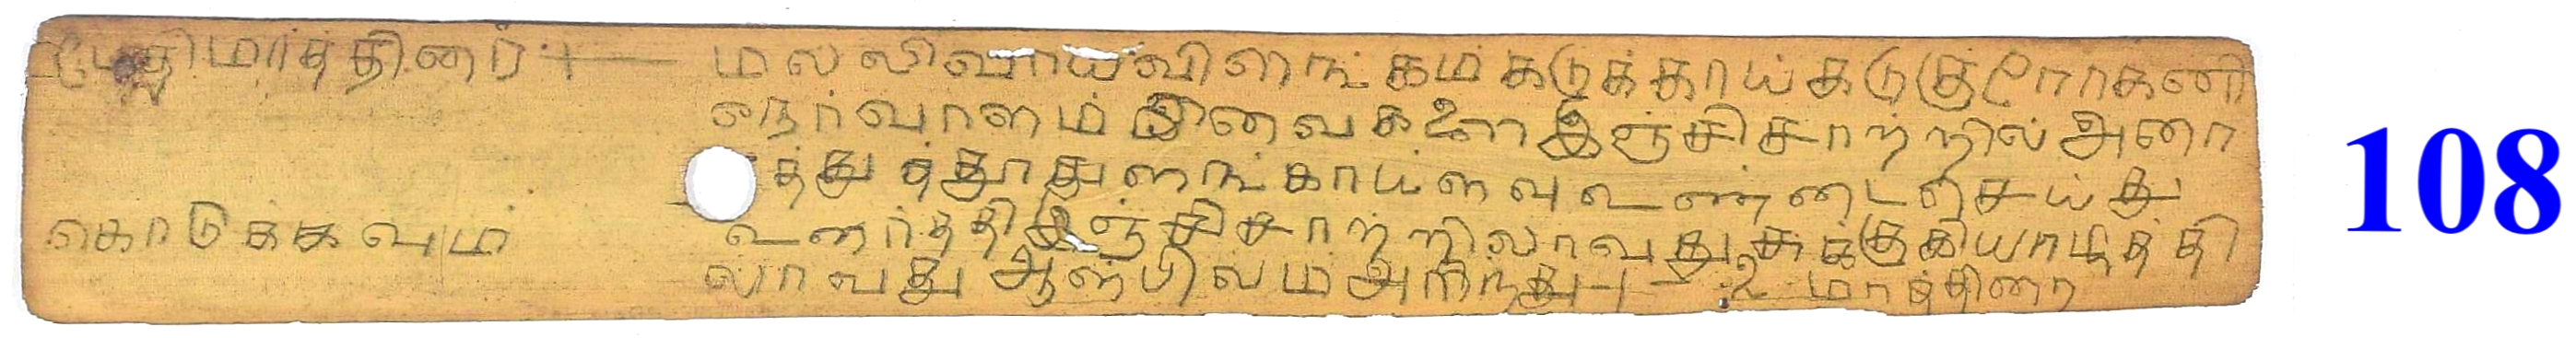 பேதிமாத்தினர் +— மல்லிவாய்விளங்கம் கடுக்காய் கடுகுரோகணி
நெர்வாளம் இவைகளை இஞ்சிசாற்றில் அரை
த்து த்தூதுளங்காய்ளவு உண்டை செய்து
கொடுக்கவும் உனர்த்தி இஞ்சிசாற்றிலாவது சுக்குகியாழத்தி
லாவது ஆள்பிலம் அறிந்து 1 - 2 மாத்திரை
108